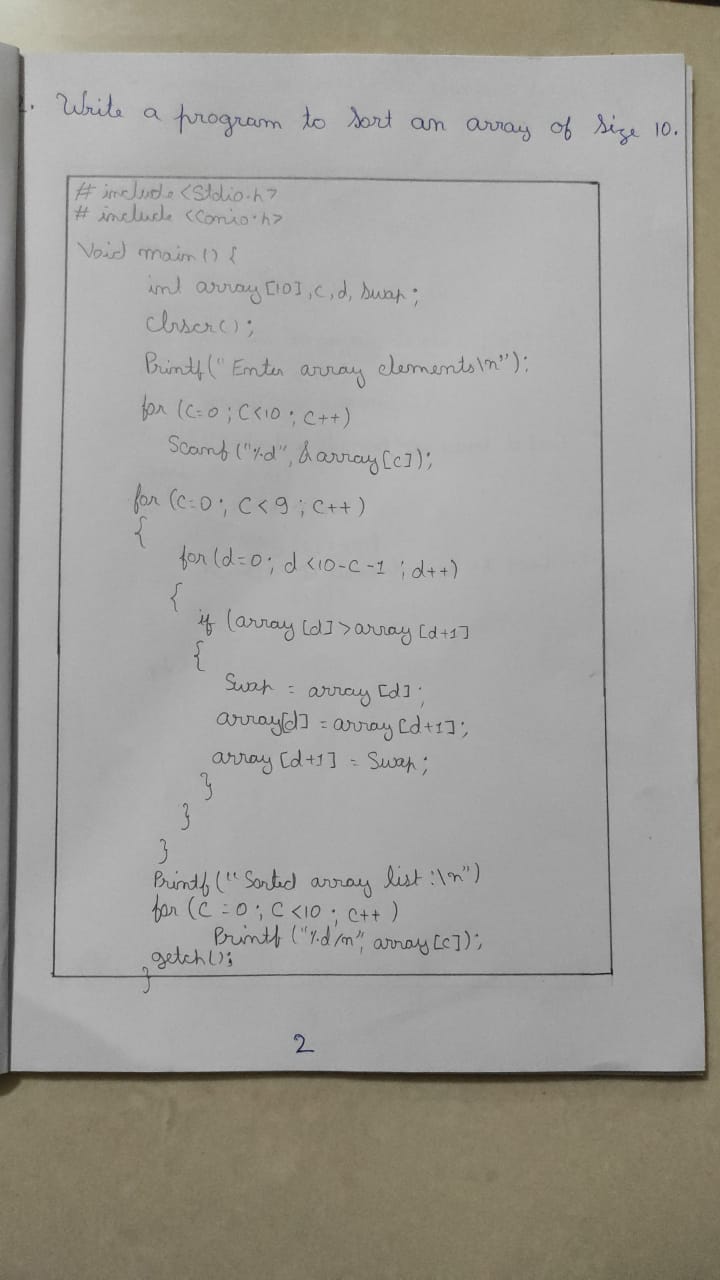 2. Write a program to Sort an array of Size 10.
# include <Stdio.h>
# include <Conio.h>
Void main () {
int array [10], c, d, Swap;
clrscr();
Printf(" Enter array elements\n");
for (C=0; C<10; C++)
Scanf ("%d", & array [c]);
for (C=0; C<9; C++)
{
for (d=0; d <10-C-1; d++)
{
if (array [d] > array [d+1]
{
Swap = array [d];
array[d] = array [d+1];
array [d+1] = Swap;
}
}
}
Printf (" Sorted array list :\n")
for (C=0; C<10; C++)
Printf ("%d/n", array [c]);
getch();
}
2